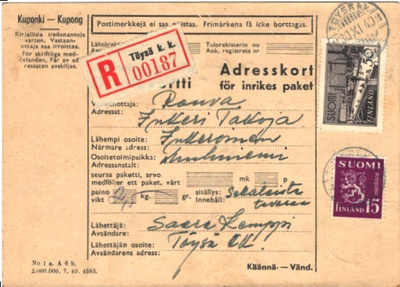 Kuponki — Kupong
Kirjallisia tiedonantoja
varten. Vastaanottaja
saa irroittaa.
För skriftliga meddelanden.
Får av adressaten
avskiljas.
No 1 a. A 6 b.
2.000.000. 7. 45. 4583.
Postimerkkejä ei saa irroittaa. Frimärkena få icke borttagas.
R
Töysä k. k.
00187
Tulorekisterin no
Ank. registrets nr
Adresskort
för inrikes paket
Rouva
Lähempi osoite:
Närmare adress:
Osoitetoimipaikka:
Adressanstalt:
seuraa paketti, arvo
medföljer ett paket, värt
mk.
paino
vikt
kg.
gr.
sisällys:
Innehåll:
Sekalaista
tavaraa
Lähettäjä:
Avsändare:
Saara Kemppi
Lähettäjän osoite:
Avsändarens adress:
Töysä kk.
Käännä. — Vänd.
SUOMI
FINLAND
50
SUOMI
FINLAND 15